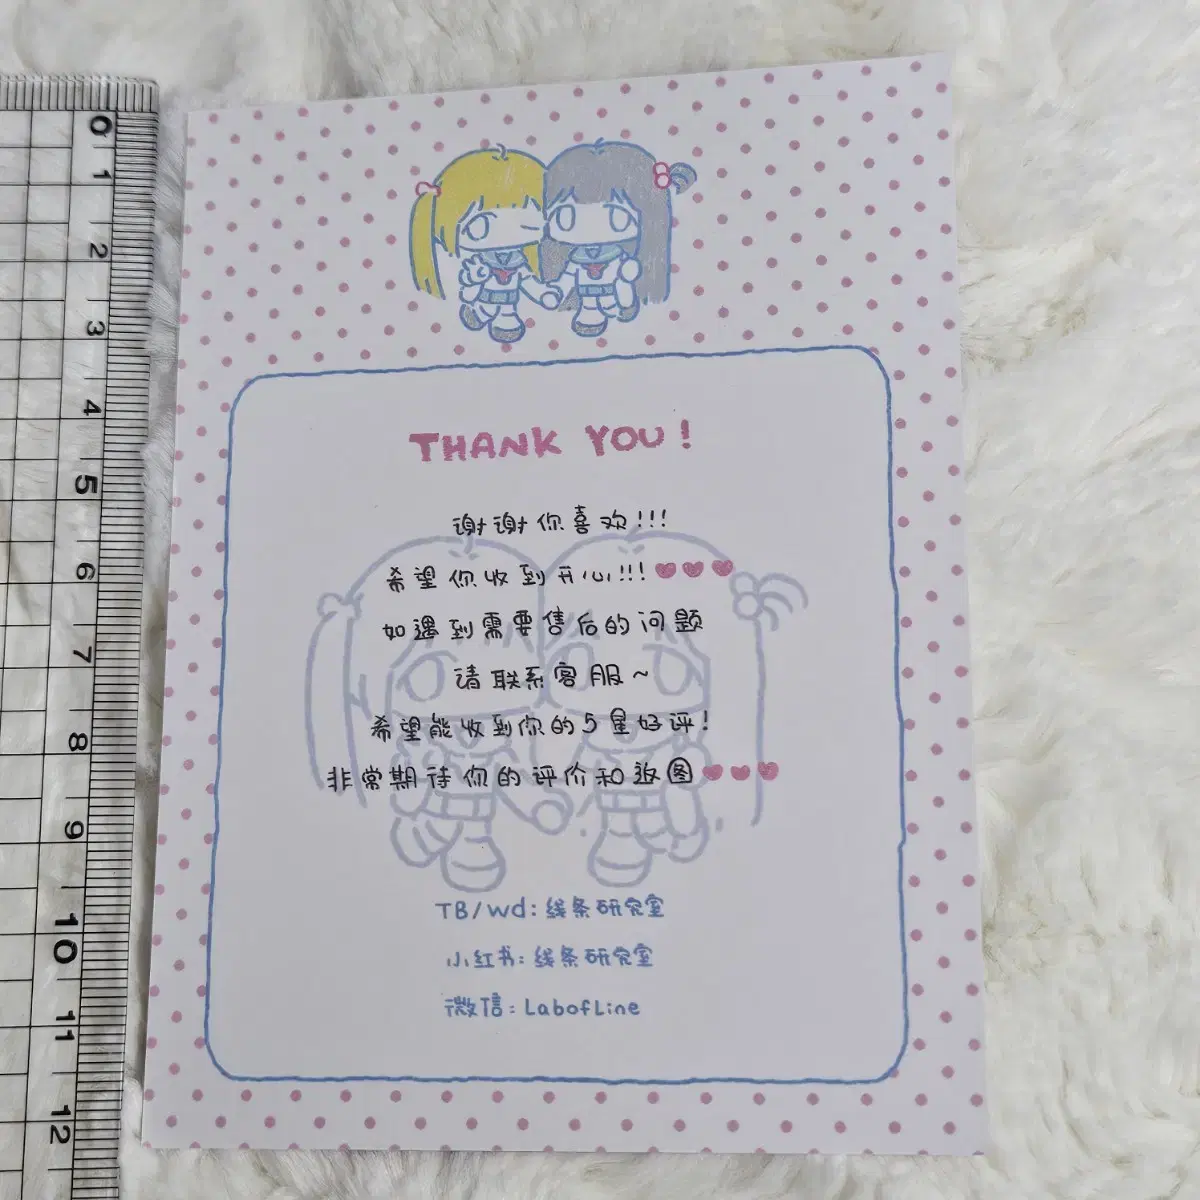 0
1
2
3
4
5
6
7
8
9
10
11
12
THANK YOU!
谢谢你喜欢!!!
希望你收到开心!!!
如遇到需要售后的问题
请联系客服~
希望能收到你的5星好评!
非常期待你的评价和返图
TB/wd: 线条研究室
小红书: 线条研究室
微信: LabofLine